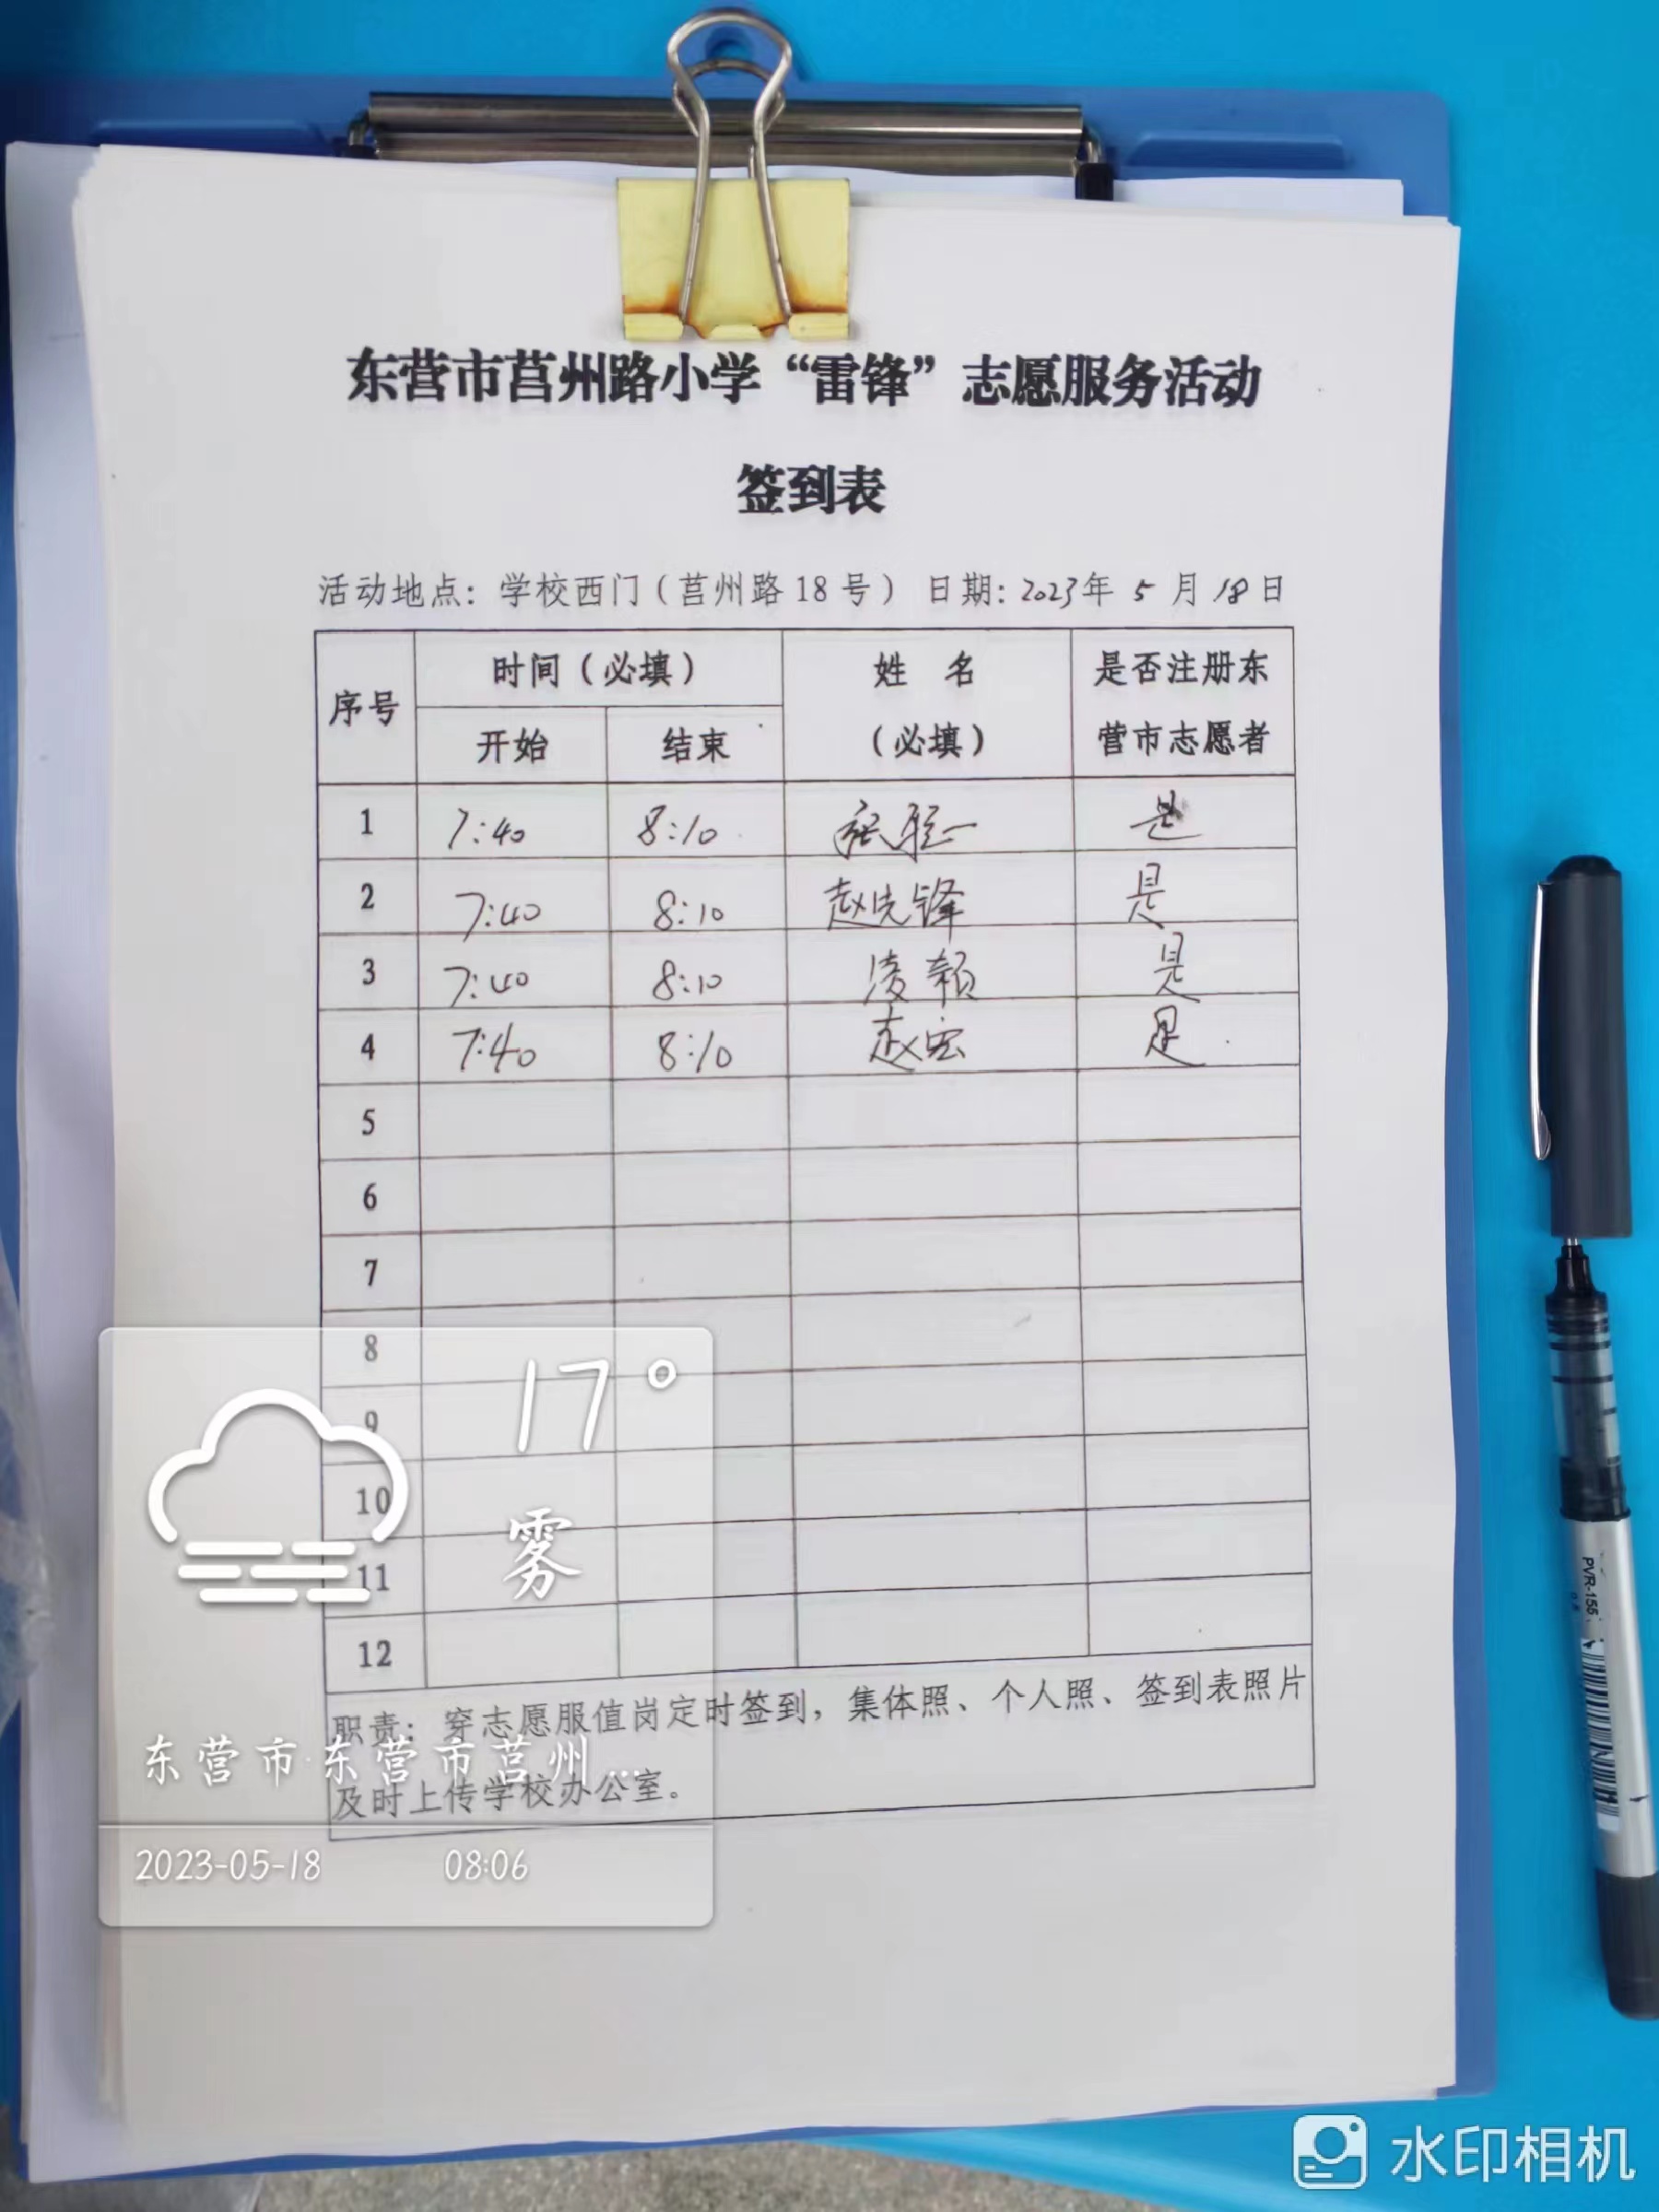 东营市莒州路小学“雷锋”志愿服务活动
签到表
活动地点：学校西门（莒州路18号） 日期：2023年 5 月 18 日
序号 时间（必填） 姓 名（必填） 是否注册东营市志愿者
开始 结束
1 7:40 8:10 是
2 7:40 8:10 赵先锋 是
3 7:40 8:10 凌颖 是
4 7:40 8:10 赵宏 是
5
6
7
8
9
10
11
12
职责：穿志愿服值岗定时签到，集体照、个人照、签到表照片
及时上传学校办公室。
17°
雾
东营市·东营市莒州...
2023-05-18 08:06
PVR-155
水印相机